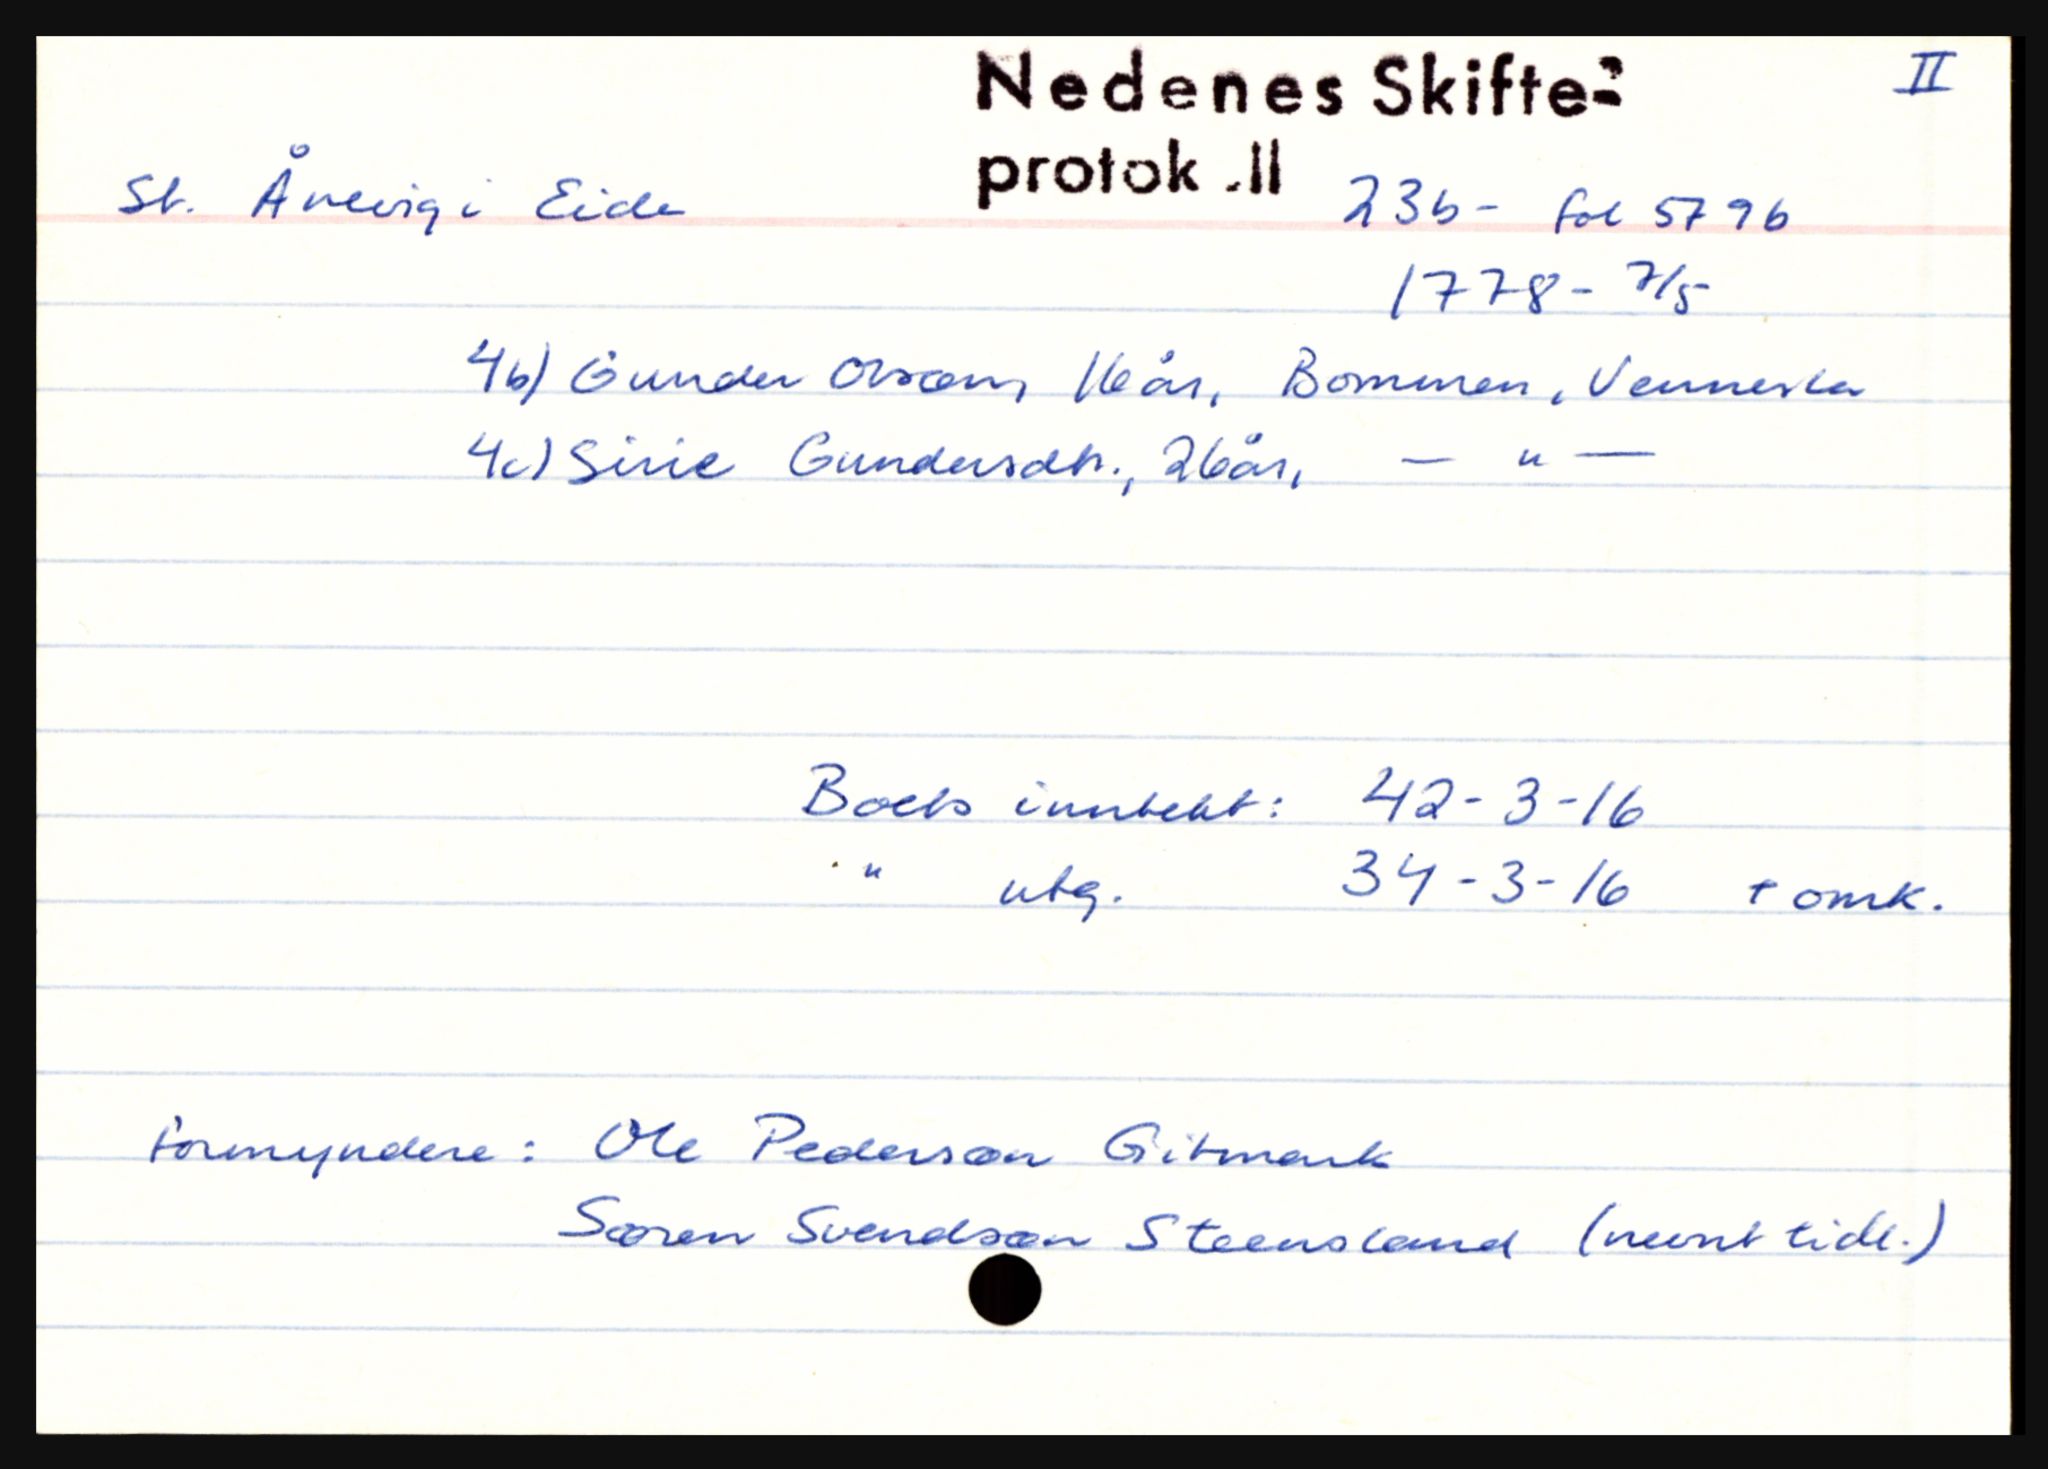 Nedenes Skifte- II
protok .ll
St. Årevig i Eide 23b - fol 579b
1778 - 7/5
4b) Gunder Olsøn, 16 år, Bommen, Vennesla
4c) Sirie Gundersdtr., 26 år, — " —
Boets inntekt: 42 - 3 - 16
" utg. 34 - 3 - 16 + omk.
Formyndere: Ole Pedersøn Gitmark
Søren Svendsøn Steensland (nevnt tidl.)